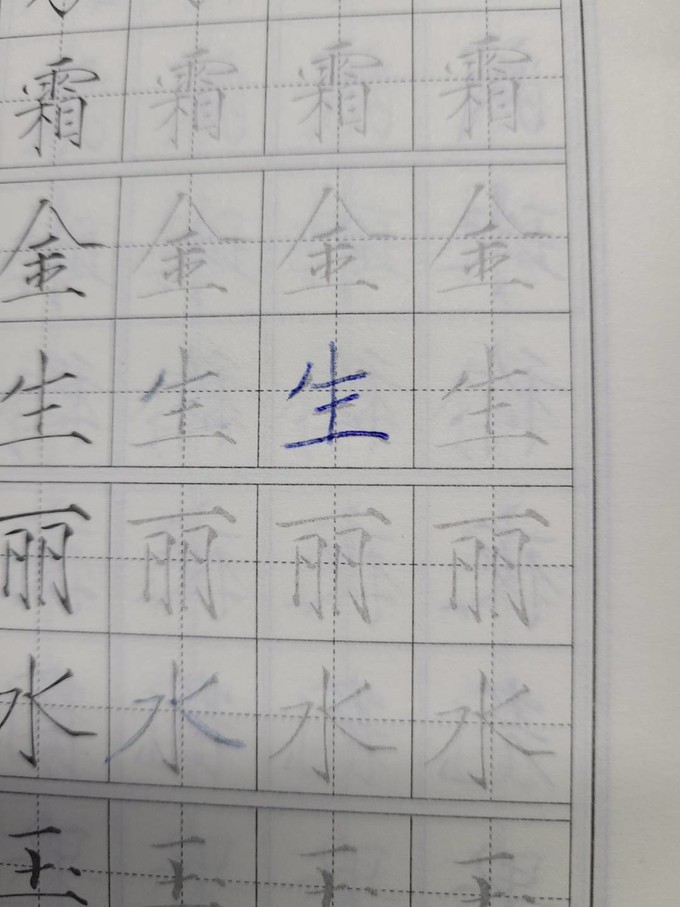 霜 霜 霜 霜
金 金 金 金
生 生 生 生
丽 丽 丽 丽
水 水 水 水
玉 玉 玉 玉